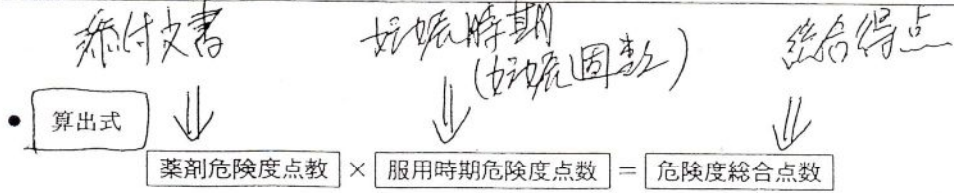 添付文書 妊娠時期 総合得点
(妊娠週数)
● 算出式
薬剤危険度点教 × 服用時期危険度点数 = 危険度総合点数